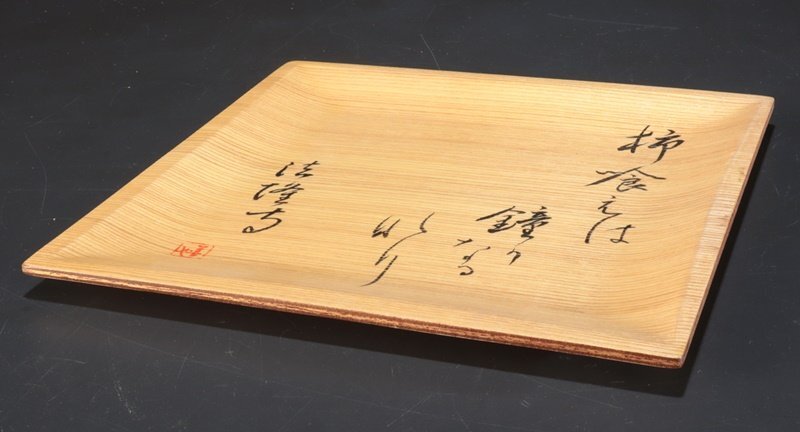 柿喰えは
鐘か
なる
也り
法隆寺